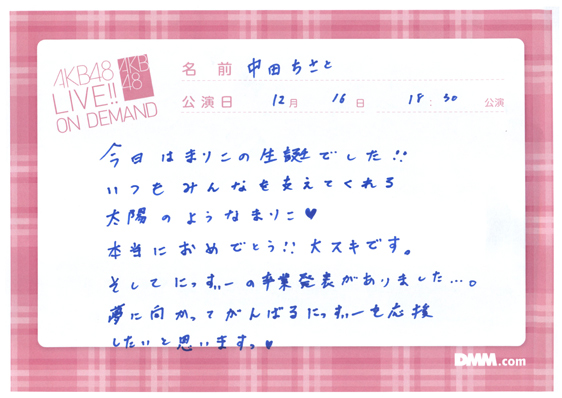 AKB48
LIVE!!
ON DEMAND
AKB
48
名前 中田ちさと
公演日 12月 16日 18:30 公演
今日はまりこの生誕でした!!
いつもみんなを支えてくれる
太陽のようなまりこ♥
本当におめでとう!!大スキです。
そしてにっすぃーの卒業発表がありました…。
夢に向かってがんばるにっすぃーを応援
したいと思いますっ♥
DMM.com